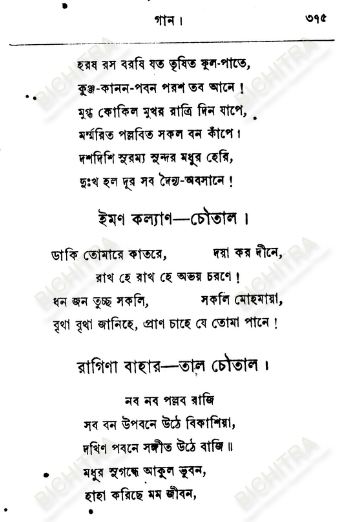 গান।
৩৭৫
হরষ রস বরষি যত তৃষিত ফুল-পাতে,
কুঞ্জ-কানন-পবন পরশ তব আনে!
মুগ্ধ কোকিল মুখর রাত্রি দিন যাপে,
মর্ম্মরিত পল্লবিত সকল বন কাঁপে।
দশদিশি সুরম্য সুন্দর মধুর হেরি,
দুঃখ হল দূর সব দৈন্য-অবসানে!
ইমণ কল্যাণ—চৌতাল।
ডাকি তোমারে কাতরে, দয়া কর দীনে,
রাখ হে রাখ হে অভয় চরণে!
ধন জন তুচ্ছ সকলি, সকলি মোহমায়া,
বৃথা বৃথা জানিহে, প্রাণ চাহে যে তোমা পানে!
রাগিণী বাহার—তাল চৌতাল।
নব নব পল্লব রাজি
সব বন উপবনে উঠে বিকাশিয়া,
দখিণ পবনে সঙ্গীত উঠে বাজি॥
মধুর সুগন্ধে আকুল ভুবন,
হাহা করিছে মম জীবন,
BICHITRA
BICHITRA
BICHITRA
BICHITRA
BICHITRA
BICHITRA